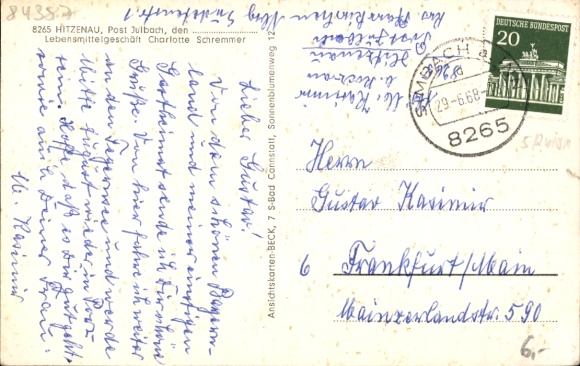 84387
8265 HITZENAU, Post Julbach, den
Lebensmittelgeschäft Charlotte Schremmer
Lieber Gustav!
Von dem schönen Bayern-
land und meiner einstigen
sende ich Dir schöne
Grüße. Von hier fahre ich weiter
an den Tegernsee und werde
Mitte August wieder in
sein. Hoffe daß es Dir gut geht
sowie auch Deiner Frau.
M. Kasimir
Ansichtskarten-BECK, 7 S-Bad Cannstatt, Sonnenblumenweg 12
M. Kasimir
Hitzenau
Post Julbach
Pfarrkirchen
DEUTSCHE BUNDESPOST
20
SIMBACH
29.-6.68
8265
Herrn
Gustav Kasimir
6 Frankfurt/Main
Mainzerlandstr. 590
6,-